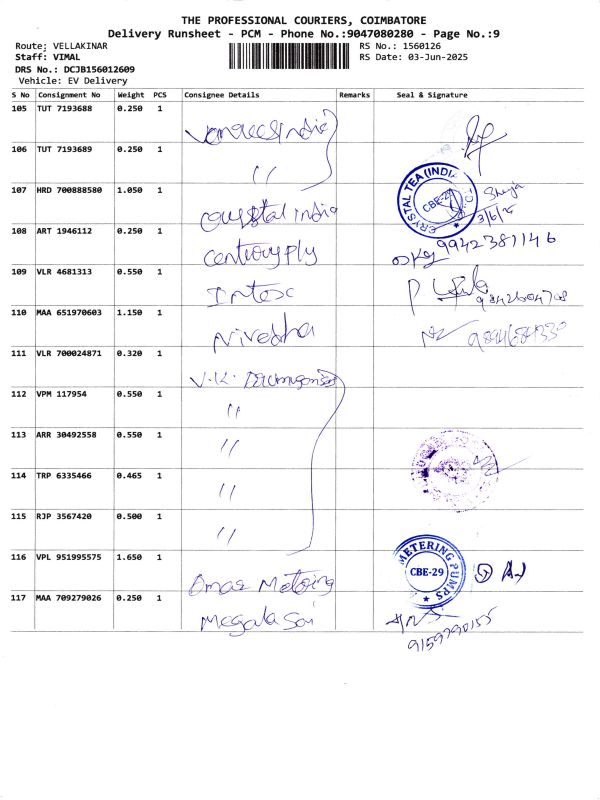 THE PROFESSIONAL COURIERS, COIMBATORE
Delivery Runsheet - PCM - Phone No.:9047080280 - Page No.:9
Route; VELLAKINAR
RS No.: 1560126
Staff: VIMAL
RS Date: 03-Jun-2025
DRS No.: DCJB156012609
Vehicle: EV Delivery
S No Consignment No Weight PCS Consignee Details Remarks Seal & Signature
105 TUT 7193688 0.250 1
106 TUT 7193689 0.250 1 "
107 HRD 700888580 1.050 1 Crystal india CRYSTAL TEA (INDIA) CBE-29 3/6/25
108 ART 1946112 0.250 1 Centuryply 9942381146
109 VLR 4681313 0.550 1 Intex
110 MAA 651970603 1.150 1 Nivedha
111 VLR 700024871 0.320 1 V.K.
112 VPM 117954 0.550 1 "
113 ARR 30492558 0.550 1 "
114 TRP 6335466 0.465 1 "
115 RJP 3567420 0.500 1 "
116 VPL 951995575 1.650 1 Omax Metering METERING PUMPS CBE-29
117 MAA 709279026 0.250 1 Megala Sai
9159790155